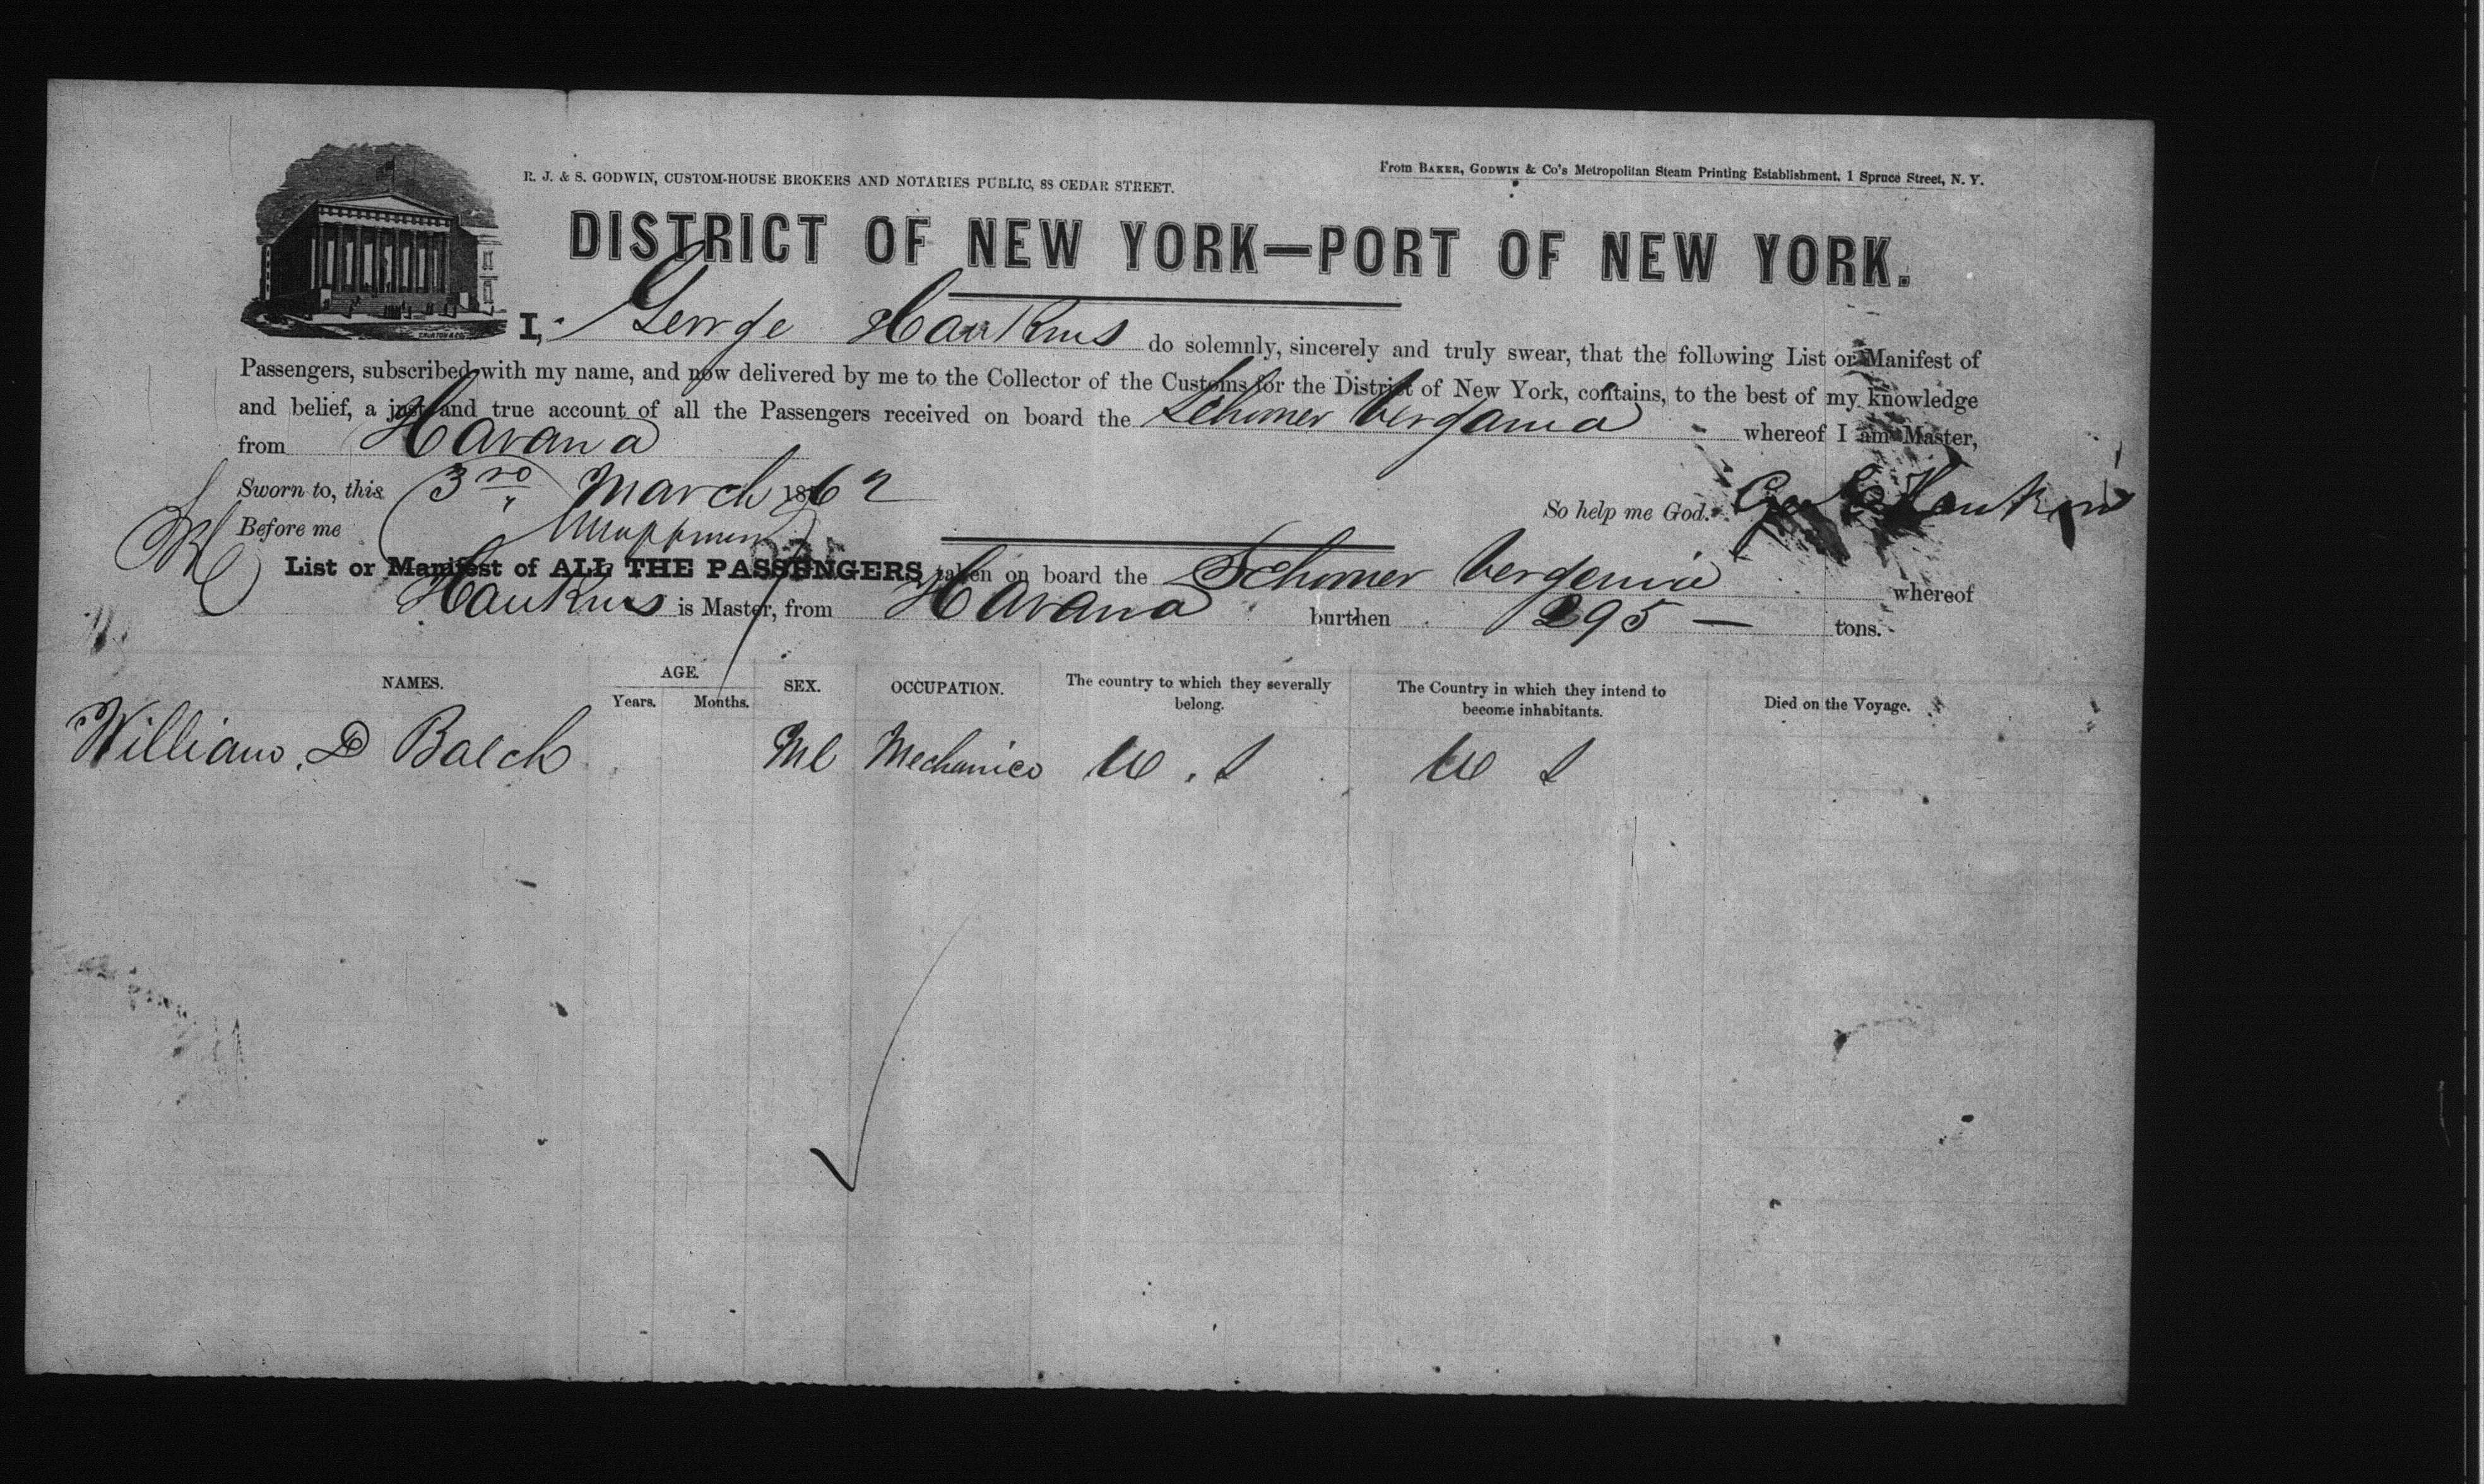 R. J. & S. GODWIN, CUSTOM-HOUSE BROKERS AND NOTARIES PUBLIC, 88 CEDAR STREET.
From BAKER, GODWIN & Co's Metropolitan Steam Printing Establishment, 1 Spruce Street, N. Y.
DISTRICT OF NEW YORK—PORT OF NEW YORK.
I, George Haukins do solemnly, sincerely and truly swear, that the following List or Manifest of
Passengers, subscribed with my name, and now delivered by me to the Collector of the Customs for the District of New York, contains, to the best of my knowledge
and belief, a just and true account of all the Passengers received on board the Schoner Vergania whereof I am Master,
from Havana
Sworn to, this 3rd March 1862
So help me God. Geo Haukins
Before me
List or Manifest of ALL THE PASSENGERS taken on board the Schoner Vergenia whereof
Haukins is Master, from Havana burthen 295 — tons.
NAMES. AGE. SEX. OCCUPATION. The country to which they severally belong. The Country in which they intend to become inhabitants. Died on the Voyage.
Years. Months.
William D Balch Ml Mechanico U. S U S